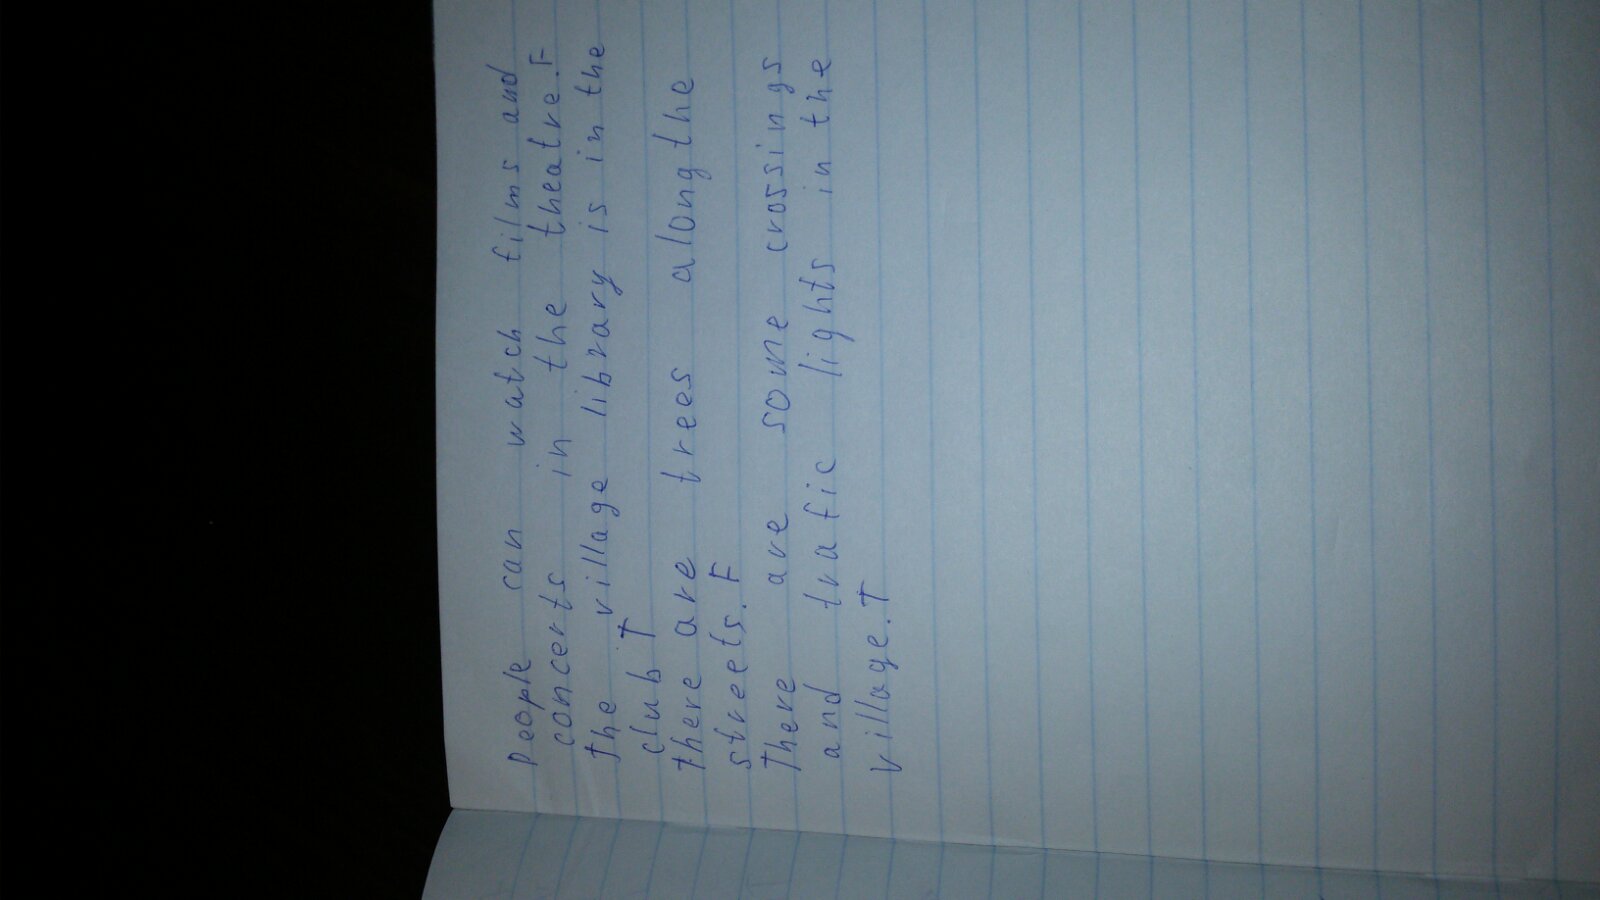 people can watch films and
concerts in the theatre. F
The village library is in the
club T
there are trees along the
streets. F
There are some crossings
and trafic lights in the
village. T